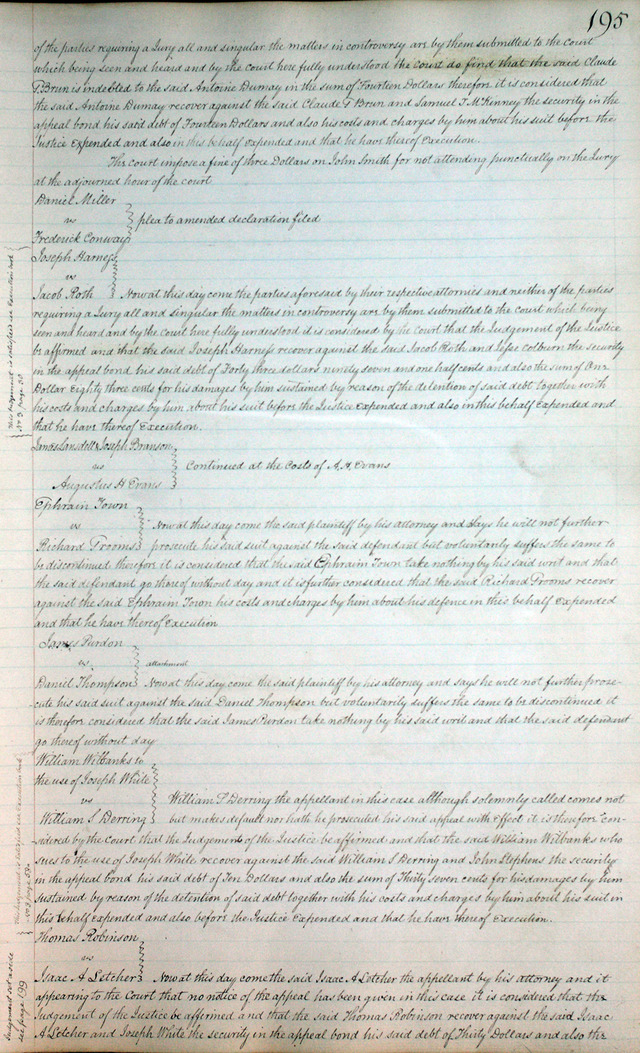 195
of the parties requiring a Jury all and singular the matters in controversy are by them submitted to the Court
which being seen and heard and by the court here fully understood the court do find that the said Claude
T. Brun is indebted to the said Antoine Dumay in the sum of Fourteen Dollars therefore it is considered that
the said Antoine Dumay recover against the said Claude T Brun and Samuel T. McKinney the security in the
appeal bond his said debt of Fourteen Dollars and also his costs and charges by him about his suit before the
Justice Expended and also in this behalf expended and that he have thereof Execution.
The court impose a fine of three Dollars on John Smith for not attending punctually on the Jury
at the adjourned hour of the court
Daniel Miller
vs
plea to amended declaration filed
Frederick Conway
Joseph Harness
vs
Jacob Roth Now at this day come the parties aforesaid by their respective attornies and neither of the parties
requiring a Jury all and singular the matters in controversy are by them submitted to the court which being
seen and heard and by the court here fully understood it is considered by the court that the Judgement of the Justice
be affirmed and that the said Joseph Harness recover against the said Jacob Roth and Jesse Colburn the security
in the appeal bond his said debt of Forty three dollars ninety seven and one half cents and also the sum of One
Dollar Eighty three cents for his damages by him sustained by reason of the detention of said debt together with
his costs and charges by him about his suit before the Justice expended and also in this behalf expended and
that he have thereof Execution.
This Judgement is satisfied see Execution book
No 3. page 35
James Lansdell & Joseph Branson
vs
Continued at the costs of A. H. Evans
Augustus H Evans
Ephraim Town
vs Now at this day come the said plaintiff by his attorney and says he will not further
Richard Prooms prosecute his said suit against the said defendant but voluntarily suffers the same to
be discontinued therefore it is considered that the said Ephraim Town take nothing by his said writ and that
the said defendant go thereof without day and it is further considered that the said Richard Prooms recover
against the said Ephraim Town his costs and charges by him about his defence in this behalf Expended
and that he have thereof Execution
James Purdon
vs attachment
Daniel Thompson Now at this day come the said plaintiff by his attorney and says he will not further prose-
cute his said suit against the said Daniel Thompson but voluntarily suffers the same to be discontinued it
is therefore considered that the said James Purdon take nothing by his said writ and that the said defendant
go thereof without day
William Wilbanks to
the use of Joseph White
vs William S Derring the appellant in this case although solemnly called comes not
William S Derring but makes default nor hath he prosecuted his said appeal with Effect it is therefore con-
sidered by the Court that the Judgement of the Justice be affirmed and that the said William Wilbanks who
sues to the use of Joseph White recover against the said William S Derring and John Stephens the security
in the appeal bond his said debt of Ten Dollars and also the sum of Thirty seven cents for his damages by him
sustained by reason of the detention of said debt together with his costs and charges by him about his suit in
this behalf Expended and also before the Justice Expended and that he have thereof Execution.
This Judgement is satisfied see Execution book
Thomas Robinson
vs
Isaac A Letcher Now at this day come the said Isaac A Letcher the appellant by his attorney and it
appearing to the Court that no notice of the appeal has been given in this case it is considered that the
Judgement of the Justice be affirmed and that the said Thomas Robinson recover against the said Isaac
A Letcher and Joseph White the security in the appeal bond his said debt of Thirty Dollars and also the
Judgement set aside
see page 199